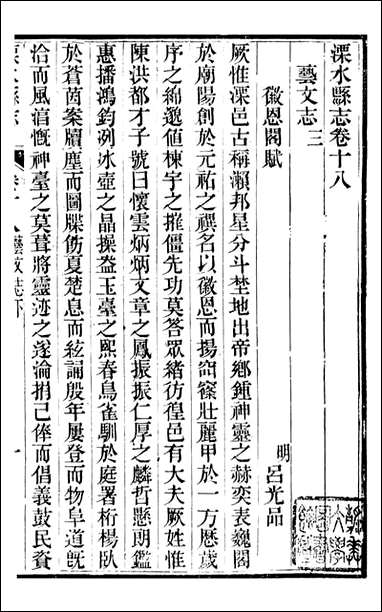 溧水縣志卷十八
藝文志三
徽恩閣賦
明 呂光品
厥惟溧邑古稱瀨邦星分斗埜地出帝鄉鍾神靈之赫奕表巍閣
於廟陽創於元祐之禩名以徽恩而揚窅窱壯麗甲於一方歷歲
序之綿邈値棟宇之摧僵先功莫答眾緒彷徨邑有大夫厥姓惟
陳洪都才子號曰懷雲炳炳文章之鳳振振仁厚之麟哲懸朗鑑
惠播鴻鈞冽冰壺之晶操盎玉臺之熙春鳥雀馴於庭署桁楊臥
於蒼茵案牘塵而圖牒飭夏楚息而絃誦殷年屢登而物阜道旣
恰而風淳慨神臺之莫葺將靈迹之遂淪捐己俸而倡義鼓民資
溧水縣志
卷十八藝文志下
一